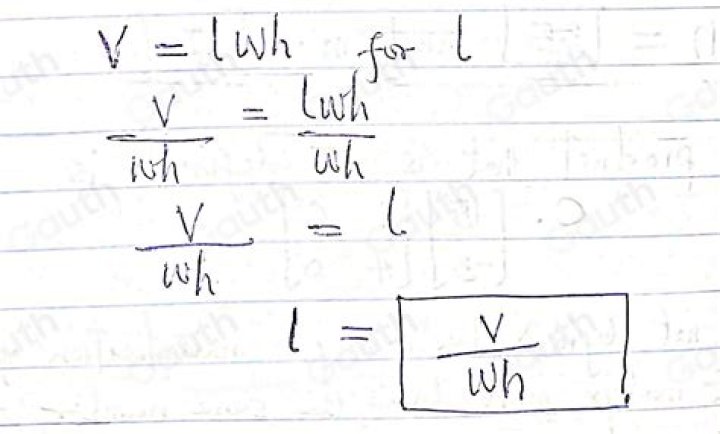 V = lwh for l
V/wh = lwh/wh
V/wh = l
l = V/wh